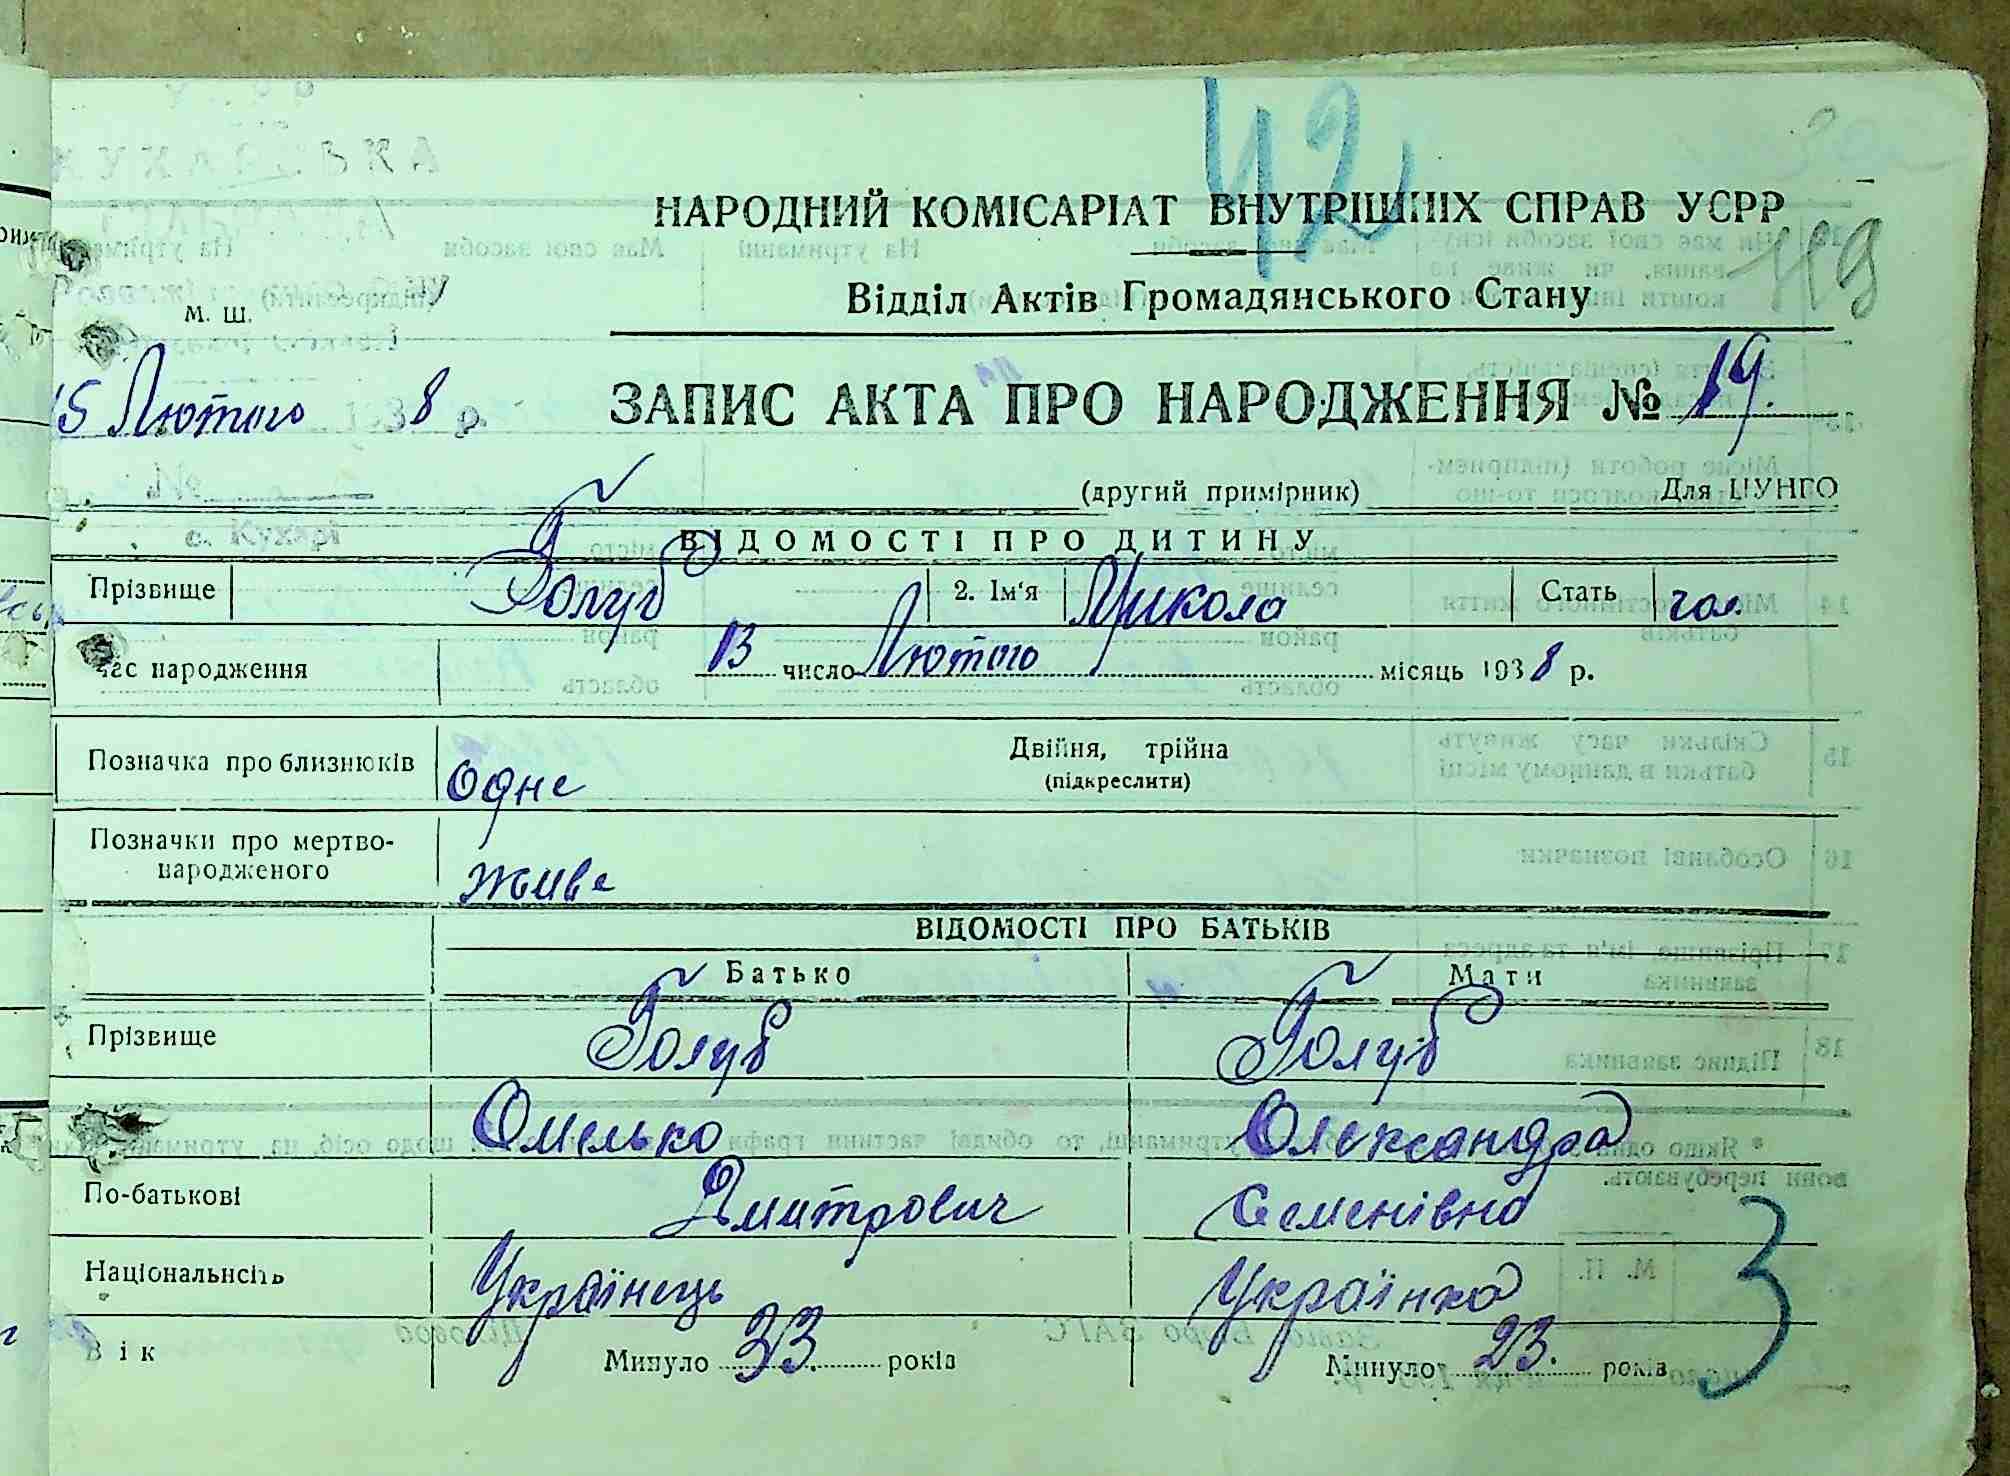 42
КУХАРСЬКА
НАРОДНИЙ КОМІСАРІАТ ВНУТРІШНІХ СПРАВ УСРР
119
М. Ш.
Відділ Актів Громадянського Стану
15 Лютого 1938 р.
ЗАПИС АКТА ПРО НАРОДЖЕННЯ № 19.
№
(другий примірник) Для ЦУНГО
с. Кухарі
ВІДОМОСТІ ПРО ДИТИНУ
Прізвище Голуб 2. Ім‘я Микола Стать чол.
Час народження 13 число Лютого місяць 1938 р.
Позначка про близнюків одне Двійня, трійна
(підкреслити)
Позначки про мертво-
народженого живе
ВІДОМОСТІ ПРО БАТЬКІВ
Батько Мати
Прізвище Голуб Голуб
Омелько Олександра
По-батькові Дмитрович Семенівна
Національність Українець Українка
Вік Минуло 33. років Минуло 23. років
3